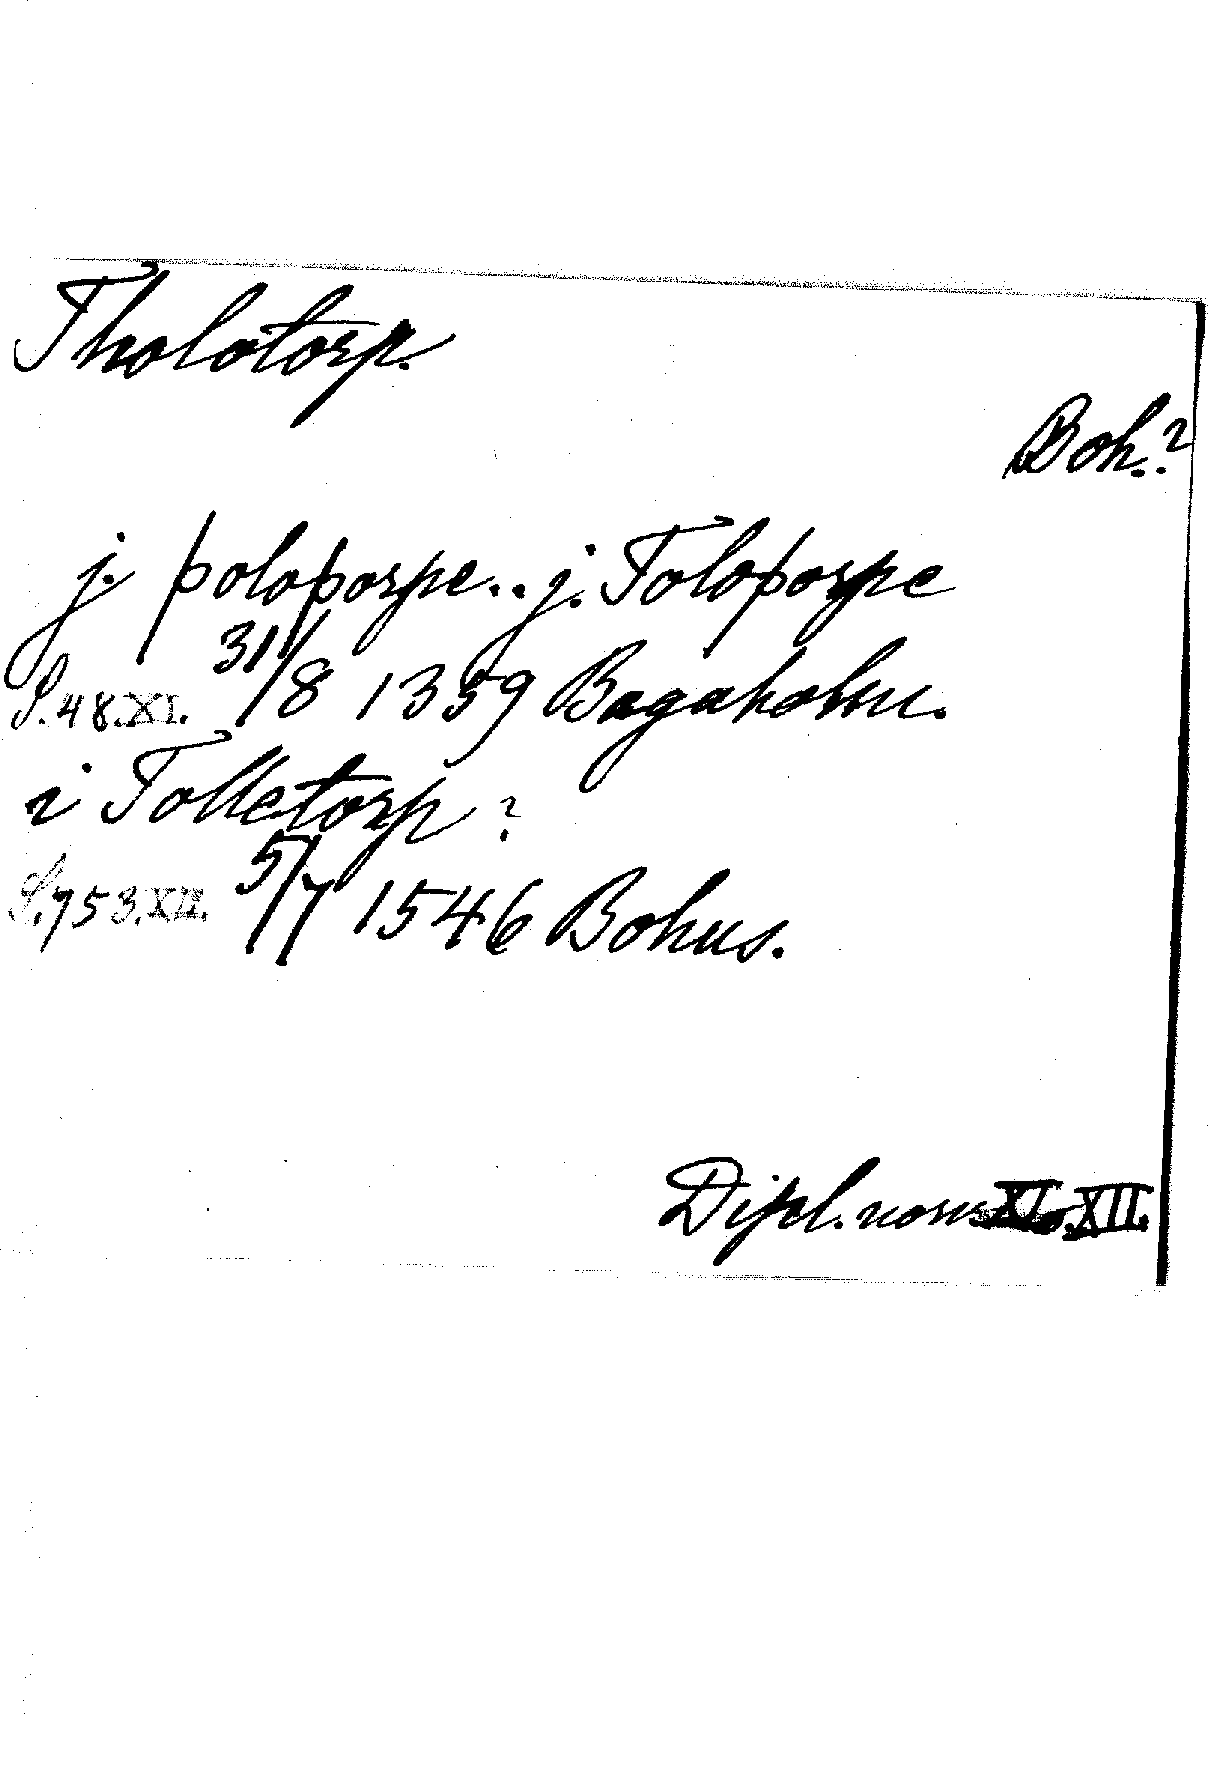 Tholotorp.
Boh.?
j. þoloþorpe.. j. Toloþorpe
S.48.XI. 31/8 1359 Bagaholm.
i Tolletorp ?
S.753.XII. 5/7 1546 Bohus.
Dipl. norv. XI. XII.